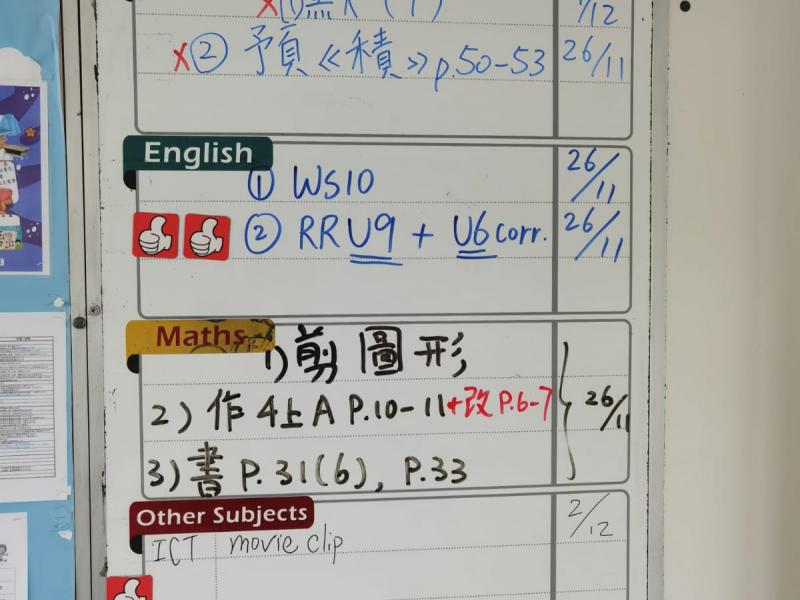 12
x ② 預《積》p.50-53 26/11
English
① WS10 26/11
② RR U9 + U6 corr. 26/11
Maths
1) 剪圖形
2) 作 4上A P.10-11 +改 P.6-7 26/11
3) 書 P.31(6), P.33
Other Subjects
ICT movie clip 2/12